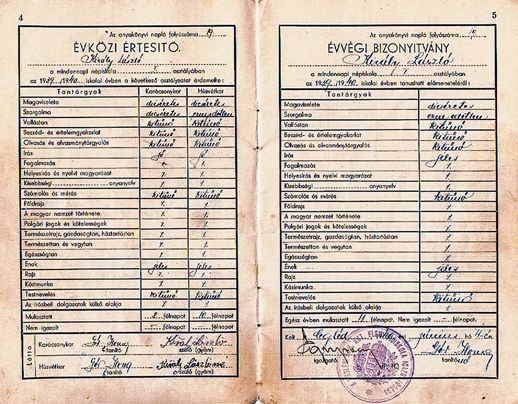 4
Az anyakönyvi napló folyószáma 19.
ÉVKÖZI ÉRTESITŐ.
Király László
a mindennapi népiskola I. osztályában
az 1939/1940. iskolai évben a következő osztályzatot érdemelte:
Tantárgyak Karácsonykor Húsvétkor
Magaviselete dicséretes dicséretes
Szorgalma
Vallástan kitűnő kitűnő
Beszéd- és értelemgyakorlat kitűnő kitűnő
Olvasás és olvasmánytárgyalás kitűnő kitűnő
Írás jó jó
Fogalmazás
Helyesírás és nyelvi magyarázat
Kisebbségi anyanyelv
Számolás és mérés kitűnő kitűnő
Földrajz
A magyar nemzet története
Polgári jogok és kötelességek
Természetrajz, gazdaságtan, háztartástan
Természettan és vegytan
Egészségtan
Ének jeles jeles
Rajz
Kézimunka
Testnevelés kitűnő kitűnő
Az írásbeli dolgozatok külső alakja
Mulasztott félnapot 10 félnapot
Nem igazolt félnapot félnapot
Látta
Karácsonykor Király László
tanító szülő (gyám)
Húsvétkor Király Lászlóné
tanító szülő (gyám)
5
Az anyakönyvi napló folyószáma 19.
ÉVVÉGI BIZONYITVÁNY.
Király László
a mindennapi népiskola I. osztályában
az 1939/1940. iskolai évben tanusított előmeneteléről:
Tantárgyak
Magaviselete dicséretes
Szorgalma
Vallástan kitűnő
Beszéd- és értelemgyakorlat kitűnő
Olvasás és olvasmánytárgyalás kitűnő
Írás jeles
Fogalmazás
Helyesírás és nyelvi magyarázat
Kisebbségi anyanyelv
Számolás és mérés kitűnő
Földrajz
A magyar nemzet története
Polgári jogok és kötelességek
Természetrajz, gazdaságtan, háztartástan
Természettan és vegytan
Egészségtan
Ének jeles
Rajz
Kézimunka
Testnevelés kitűnő
Az írásbeli dolgozatok külső alakja
Egész évben mulasztott 11 félnapot
Nem igazolt félnapot
Kelt Cegléd június hó 4-én
igazgató tanító